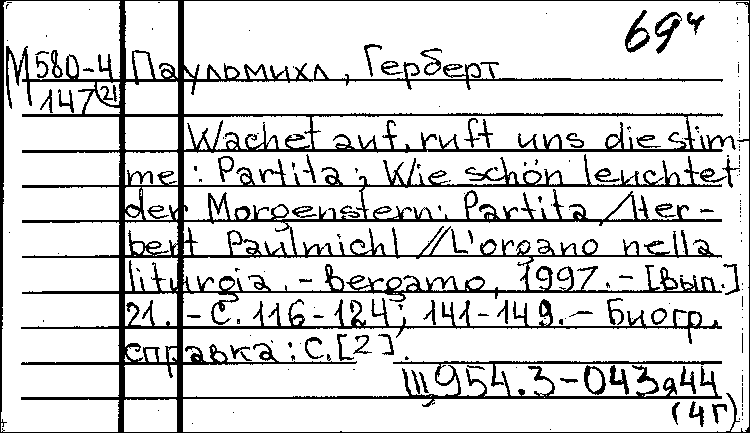 69ч
М 580-4 Паульмихл, Герберт
147(21)
Wachet auf, ruft uns die stim-
me: Partita; Wie schön leuchtet
der Morgenstern: Partita /Her-
bert Paulmichl //L'organo nella
liturgia. - Bergamo, 1997. - [Вып.]
21. - С. 116-124; 141-149. - Биогр.
справка: С.[2].
Щ954.3-043я44
(4Г)